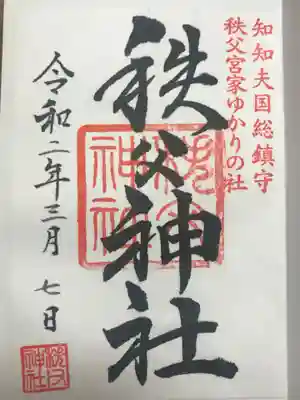 知知夫国総鎮守
秩父宮家ゆかりの社
秩父神社
令和二年三月 七日
秩父
神社
秩父
神社